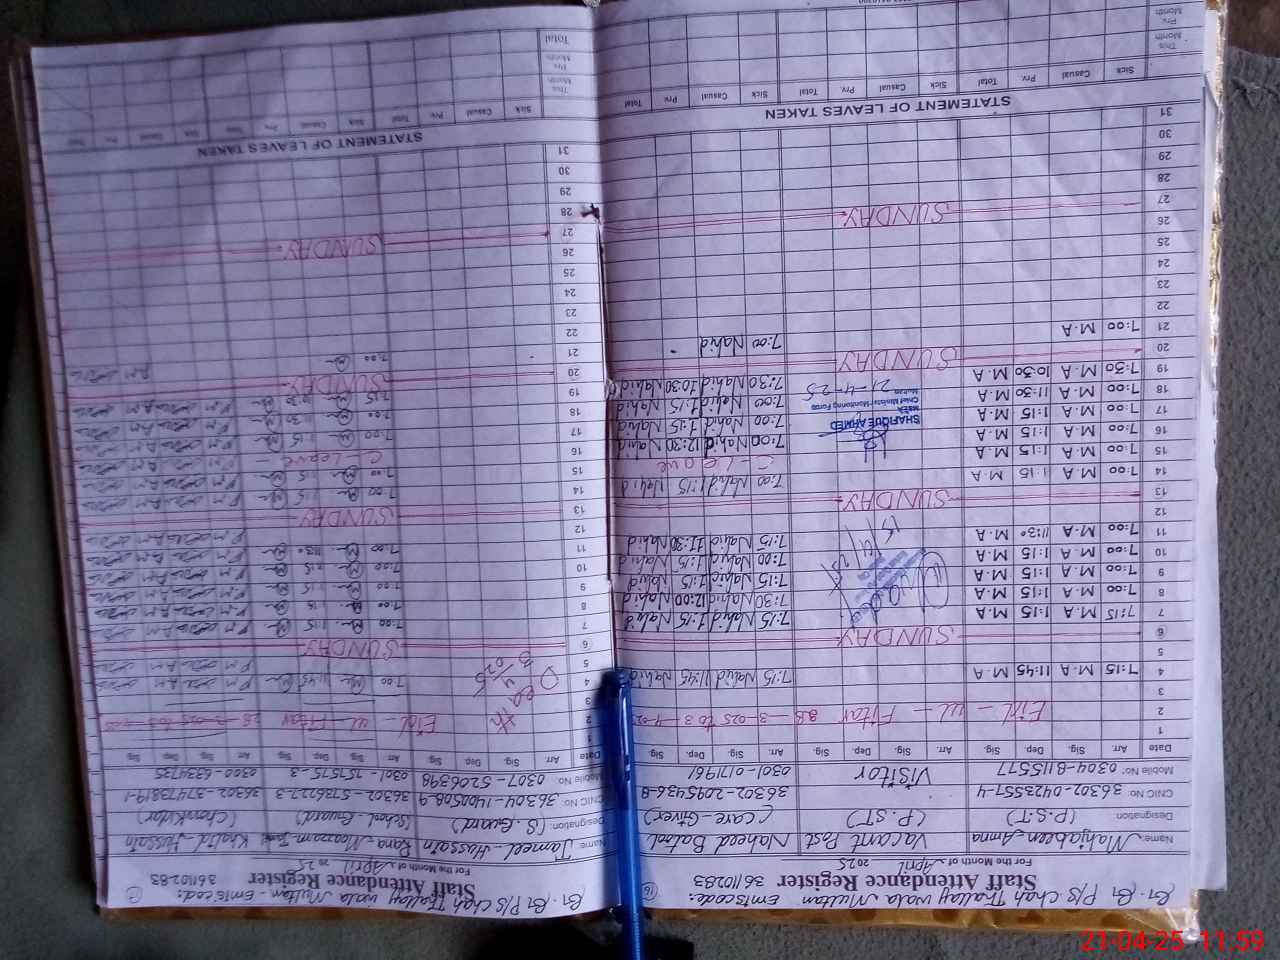 Gt. Gr P/S Chah Thallay wala Multan Emts code:
Staff Attendance Register 36110283
For the Month of April 2025
Name: Mahjabeen Amna Vacant Post Naheed Batool
Designation: (P.S.T) (P.ST) (Care-Giver)
CNIC No: 36302-0423551-4 36302-2095436-8
Mobile No: 0304-8115577 Visitor 0301-0171961
Date Arr. Sig. Dep. Sig. Arr. Sig. Dep. Sig. Arr. Sig. Dep. Sig.
1
2 Eid - ul - Fitar 28-3-025 to 3-4-025
3
4 7:15 M.A 11:45 M.A 7:15 Nahid 11:45 Nahid
5
6 SUNDAY
7 7:15 M.A 1:15 M.A 7:15 Nahid 1:15 Nahid
8 7:00 M.A 1:15 M.A 7:30 Nahid 12:00 Nahid
9 7:00 M.A 1:15 M.A 7:15 Nahid 1:15 Nahid
10 7:00 M.A 1:15 M.A 7:00 Nahid 1:15 Nahid
11 7:00 M.A 11:30 M.A 7:15 Nahid 11:30 Nahid
12
13 SUNDAY
14 7:00 M.A 1:15 M.A 7:00 Nahid 1:15 Nahid
15 7:00 M.A 1:15 M.A C-Leave
16 7:00 M.A 1:15 M.A 7:00 Nahid 12:30 Nahid
17 7:00 M.A 1:15 M.A 7:00 Nahid 1:15 Nahid
18 7:00 M.A 11:30 M.A 7:00 Nahid 1:15 Nahid
19 7:30 M.A 10:30 M.A 7:30 Nahid 10:30 Nahid
SHAFIQUE AHMED
MEEA
Chief Minister Monitoring Force
21-4-25
20 SUNDAY
21 7:00 M.A 7:00 Nahid
22
23
24
25
26
27 SUNDAY
28
29
30
31
STATEMENT OF LEAVES TAKEN
Sick Casual Prv. Total Sick Casual Prv. Total Sick Casual Prv. Total
This Month
Prv. Month
Gt. Gr P/S Chah Thallay wala Multan - Emts code:
Staff Attendance Register 36110283
For the Month of April 2025
Name: Jameel-Hassain Rana Moazzam Khalid-Hussain
Designation: (S. Guard) (School-Guard) (Chowkidar)
CNIC No: 36304-1400508-9 36302-5136227-3 36302-37473819-1
Mobile No: 0307-5206398 0301-751515-3 0300-6334735
Date Arr. Sig. Dep. Sig. Arr. Sig. Dep. Sig.
1
2 Eid - ul - Fitar 28-3-025 to 3-4-025
3
Death
4 7:00 11:45 A.M P.M
5
6 SUNDAY
7 7:00 1:15 A.M P.M
8 7:00 1:15 A.M P.M
9 7:00 1:15 A.M P.M
10 7:00 1:15 A.M P.M
11 7:00 11:30 A.M P.M
12
13 SUNDAY
14 7:00 1:15 A.M P.M
15 7:00 1:15 A.M P.M
16 C-Leave A.M P.M
17 7:00 1:15 A.M P.M
18 7:00 A.M P.M
19 7:25 10:30 A.M P.M
20 SUNDAY
21 7:00 A.M
22
23
24
25
26
27 SUNDAY
28
29
30
31
STATEMENT OF LEAVES TAKEN
Sick Casual Prv. Total Sick Casual Prv. Total
This Month
Prv. Month
Total
21-04-25 11:59